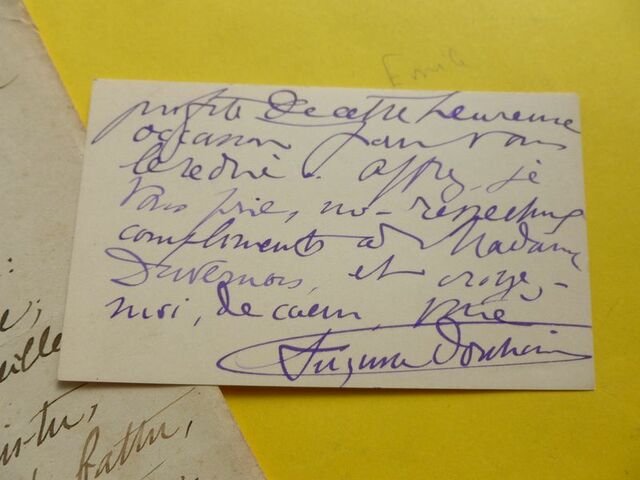 Emile
profite de cette heureuse
occasion pour vous
le redire. Offrez, je
vous prie, nos respectueux
compliments à Madame
Duvernois, et croyez-
moi, de coeur, vôtre
Auguste Dorchain
e,
eille
is-tu,
battu,